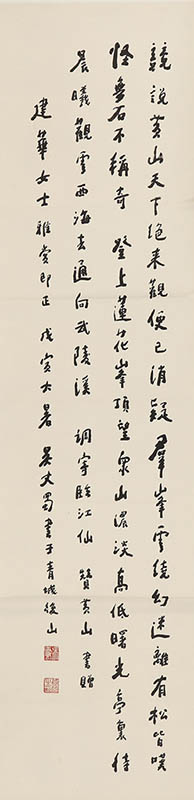 競說黄山天下绝来觀便已消疑羣峯雲绕幻迷離有松皆嘆
怪無石不稱奇 登上蓮花峯頂望衆山濃淡高低曙光亭裏待
晨曦觀雲西海去通向武陵溪 調寄臨江仙 贊黄山 書贈
建華女士雅賞即正 戊寅大暑 吴丈蜀書于青城後山